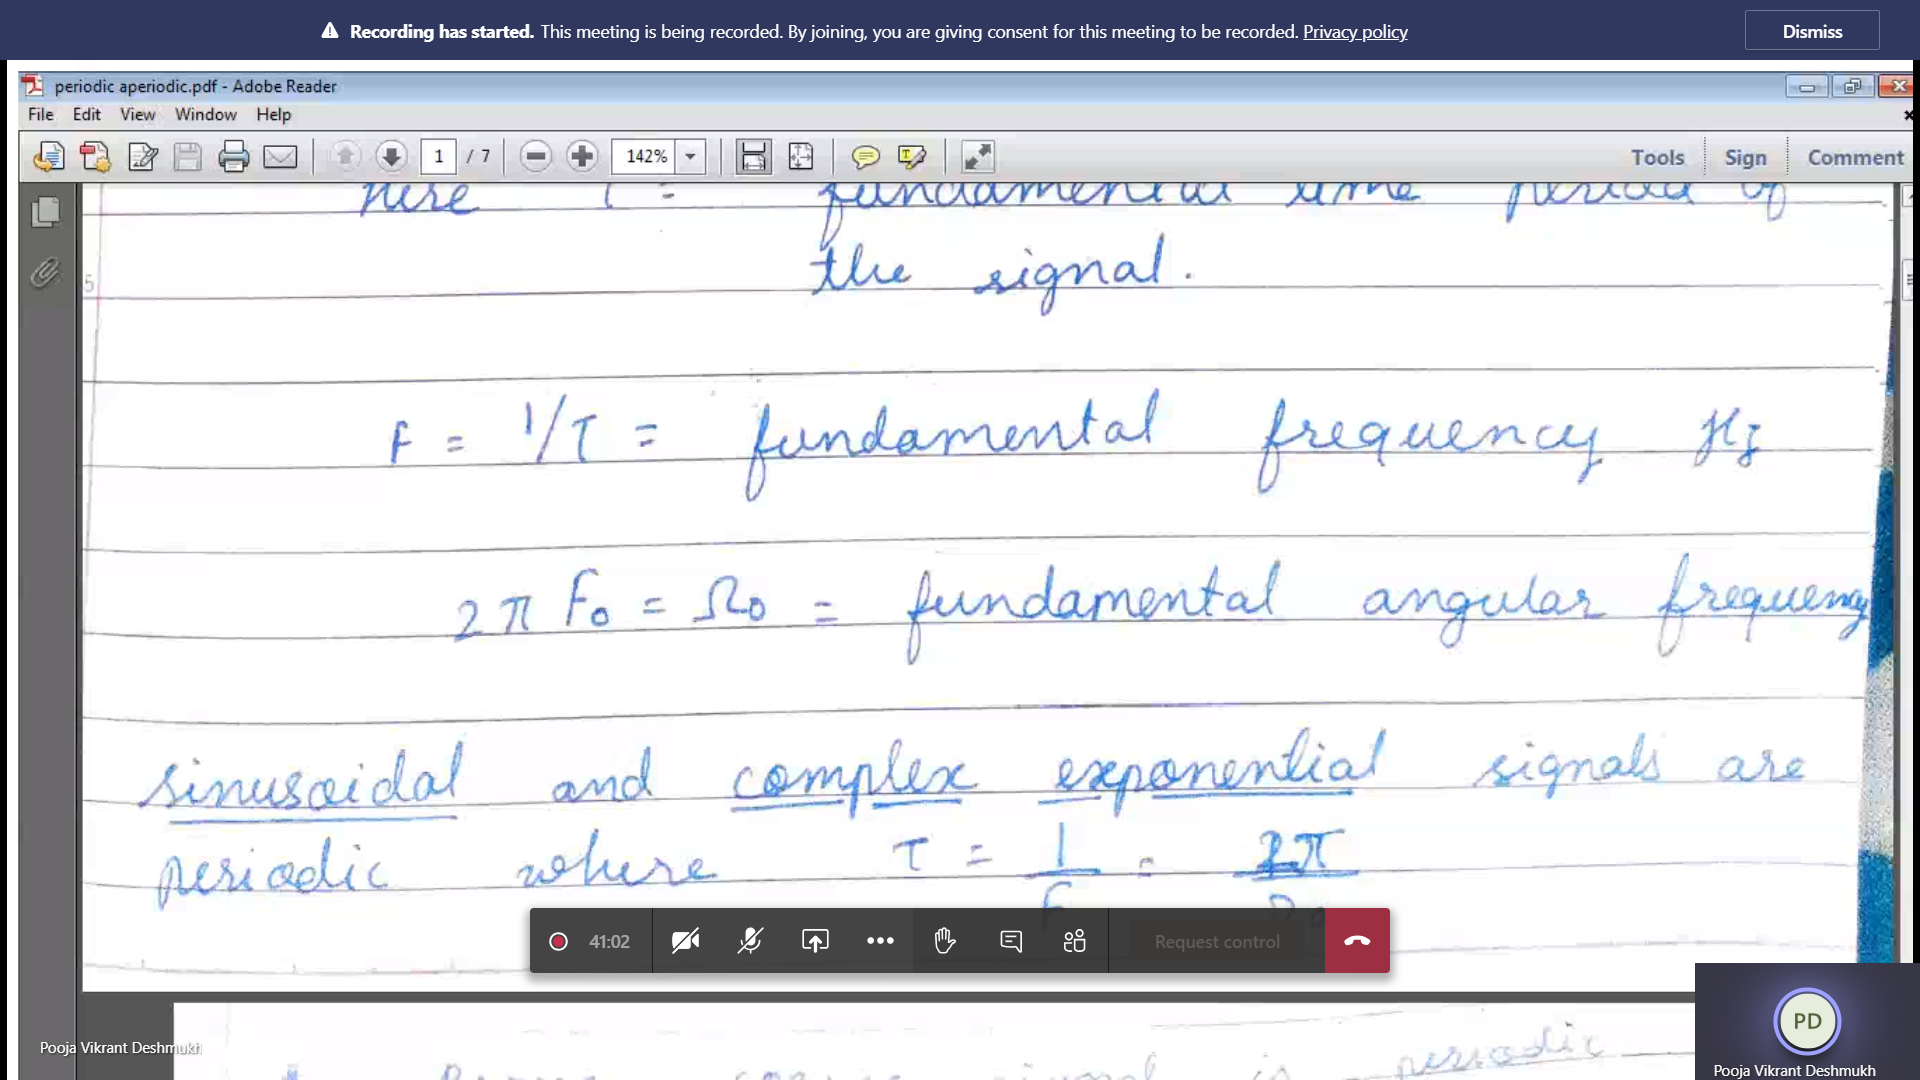 Recording has started. This meeting is being recorded. By joining, you are giving consent for this meeting to be recorded. Privacy policy
Dismiss
periodic aperiodic.pdf - Adobe Reader
File Edit View Window Help
1 / 7 142% Tools Sign Comment
here T = fundamental time period of
the signal.
5
F = 1/T = fundamental frequency Hz
2π F₀ = Ω₀ = fundamental angular frequency
sinusoidal and complex exponential signals are
periodic where T = 1/F = 2π/Ω₀
41:02 Request control
PD
Pooja Vikrant Deshmukh
Pooja Vikrant Deshmukh
signal is periodic